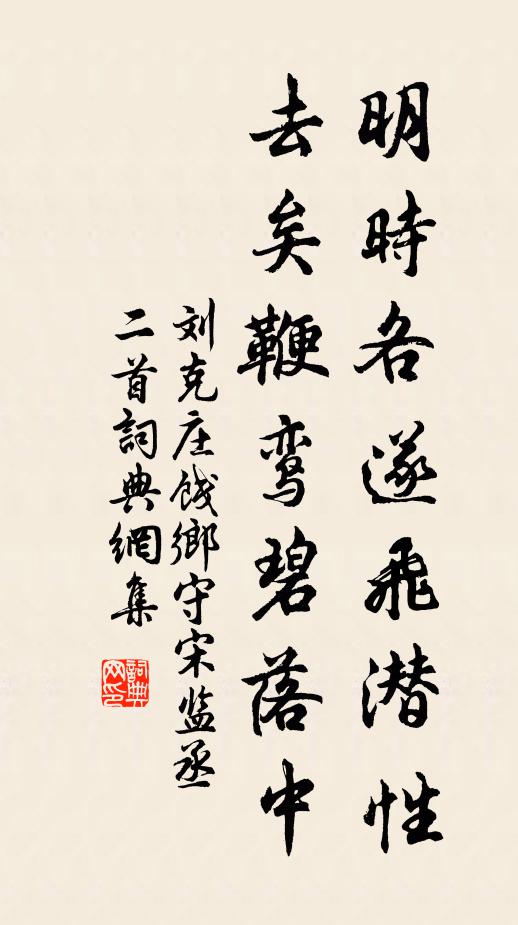 明時各遂飛潜性
去矣鞭鸾碧落中
刘克庄餞鄉守宋监丞
二首詞典網集
詞典
网印